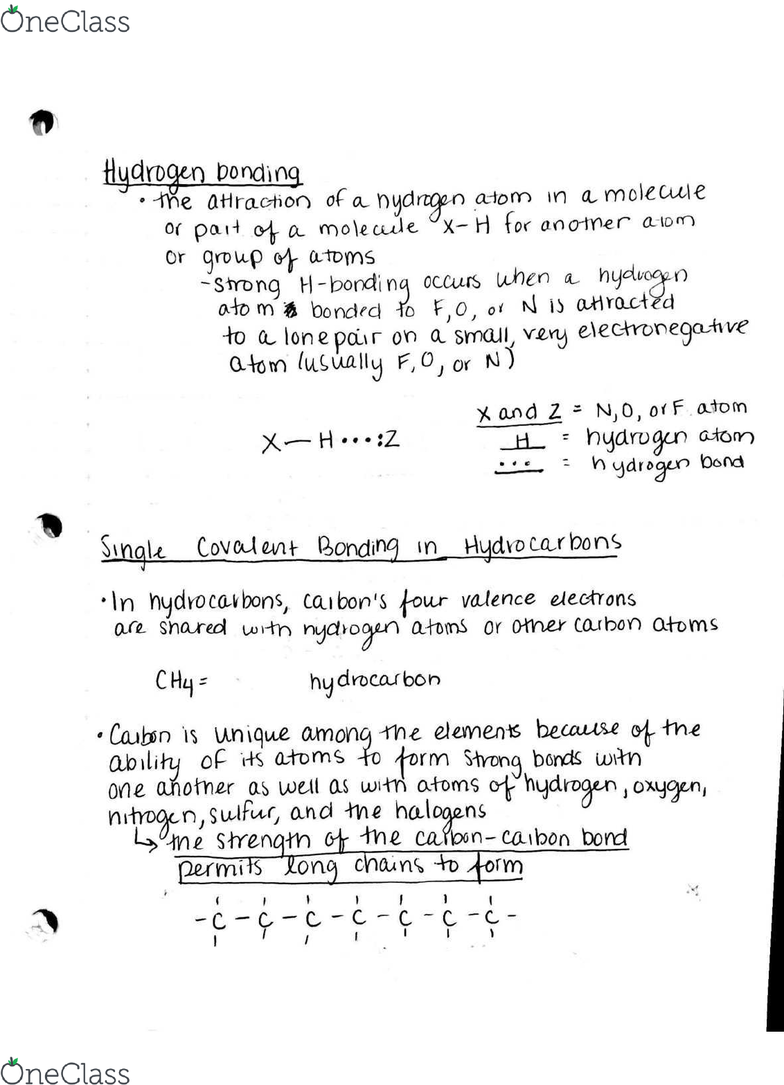 OneClass
Hydrogen bonding
• the attraction of a hydrogen atom in a molecule
or part of a molecule X-H for another atom
or group of atoms
-strong H-bonding occurs when a hydrogen
atom bonded to F, O, or N is attracted
to a lone pair on a small, very electronegative
atom (usually F, O, or N)
X and Z = N, O, or F atom
X—H•••:Z
H = hydrogen atom
••• = hydrogen bond
Single Covalent Bonding in Hydrocarbons
• In hydrocarbons, carbon's four valence electrons
are shared with hydrogen atoms or other carbon atoms
CH4= hydrocarbon
• Carbon is unique among the elements because of the
ability of its atoms to form strong bonds with
one another as well as with atoms of hydrogen, oxygen,
nitrogen, sulfur, and the halogens
↳ the strength of the carbon-carbon bond
permits long chains to form
-C-C-C-C-C-C-C-
OneClass